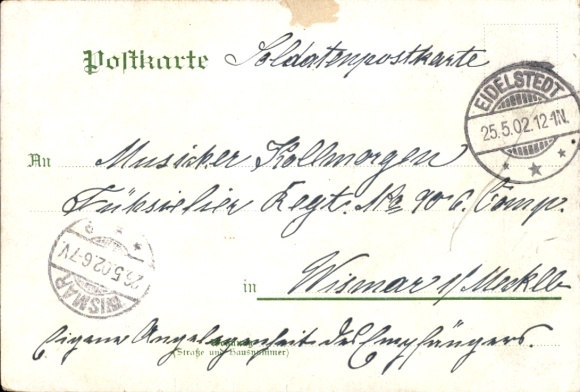 Postkarte Soldatenpostkarte
EIDELSTEDT
25.5.02.12-1N.
An Musicker Kollmorgen
Füksielier Regt. No 90 6. Comp.
WISMAR
26.5.02.6-7V.
in Wismar i/Meckl.
Eigene Angelegenheit des Empfängers.
Wohnung
(Straße und Hausnummer)